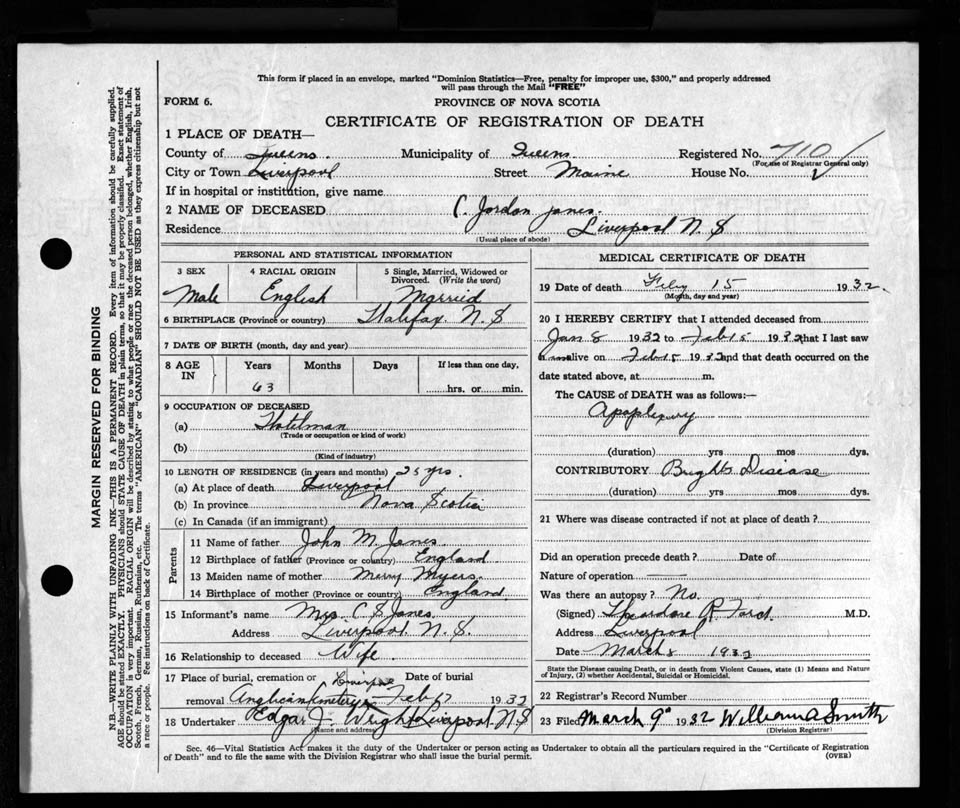 This form if placed in an envelope, marked "Dominion Statistics—Free, penalty for improper use, $300," and properly addressed
will pass through the Mail "FREE"
FORM 6.
PROVINCE OF NOVA SCOTIA
CERTIFICATE OF REGISTRATION OF DEATH
1 PLACE OF DEATH—
County of Queens Municipality of Queens Registered No. 710
(For use of Registrar General only)
City or Town Liverpool Street Maine House No.
If in hospital or institution, give name
2 NAME OF DECEASED C. Jordan Janes.
Residence Liverpool N. S
(Usual place of abode)
PERSONAL AND STATISTICAL INFORMATION
3 SEX
Male
4 RACIAL ORIGIN
English
5 Single, Married, Widowed or
Divorced. (Write the word)
Married
6 BIRTHPLACE (Province or country) Halifax. N. S
7 DATE OF BIRTH (month, day and year)
8 AGE
IN
Years Months Days If less than one day,
63
hrs. or min.
9 OCCUPATION OF DECEASED
(a) Hotelman
(Trade or occupation or kind of work)
(b)
(Kind of industry)
10 LENGTH OF RESIDENCE (in years and months) 25 yrs.
(a) At place of death Liverpool
(b) In province Nova Scotia
(c) In Canada (if an immigrant)
Parents
11 Name of father John M. Janes
12 Birthplace of father (Province or country) England
13 Maiden name of mother Merry Myers.
14 Birthplace of mother (Province or country) England
15 Informant's name Mrs. C S Janes
Address Liverpool. N. S.
16 Relationship to deceased Wife.
17 Place of burial, cremation or Liverpool Date of burial
removal Anglican Cemetery Feb 17 1932
18 Undertaker Edgar J. Wright Liverpool N S
(Name and address)
MEDICAL CERTIFICATE OF DEATH
19 Date of death Feby 15 1932.
(Month, day and year)
20 I HEREBY CERTIFY that I attended deceased from
Jan 8 1932 to Feb 15 1932 that I last saw
him alive on Feb 15 1932 and that death occurred on the
date stated above, at m.
The CAUSE of DEATH was as follows:—
Apoplexy
(duration) yrs mos dys.
CONTRIBUTORY Brights Disease
(duration) yrs mos dys.
21 Where was disease contracted if not at place of death?
Did an operation precede death? Date of
Nature of operation —
Was there an autopsy? No.
(Signed) Theordore R. Ford M.D.
Address Liverpool
Date March 8 1932
State the Disease causing Death, or in death from Violent Causes, state (1) Means and Nature
of Injury, (2) whether Accidental, Suicidal or Homicidal.
22 Registrar's Record Number
23 Filed March 9" 1932 William A Smith
(Division Registrar)
Sec. 46—Vital Statistics Act makes it the duty of the Undertaker or person acting as Undertaker to obtain all the particulars required in the "Certificate of Registration
of Death" and to file the same with the Division Registrar who shall issue the burial permit.
(OVER)
MARGIN RESERVED FOR BINDING
N.B.—WRITE PLAINLY WITH UNFADING INK—THIS IS A PERMANENT RECORD. Every item of information should be carefully supplied.
AGE should be stated EXACTLY. PHYSICIANS should STATE CAUSE OF DEATH in plain terms, so that it may be properly classified. Exact statement of
OCCUPATION is very important. RACIAL ORIGIN will be described by stating to what people or race the deceased person belonged, whether English, Irish,
Scotch, French, German, Russian, Ruthenian, etc. The terms "AMERICAN" or "CANADIAN" SHOULD NOT BE USED as they express citizenship but not
a race or people. Fee instructions on back of Certificate.